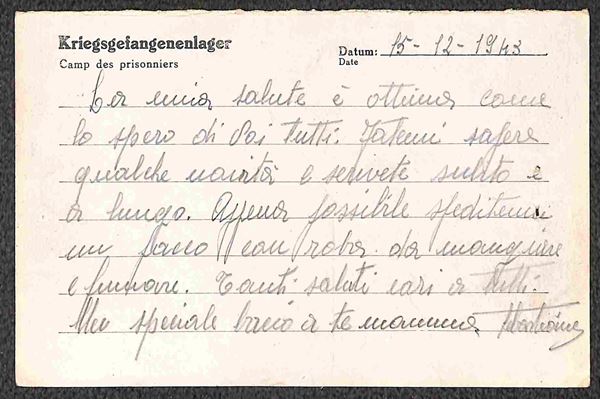 Kriegsgefangenenlager
Camp des prisonniers
Datum: 15-12-1943
Date
La mia salute è ottima come
lo spero di Voi tutti. Fatemi sapere
qualche novità e scrivete subito e
a lungo. Appena possibile speditemi
un pacco con roba da mangiare
e fumare. Tanti saluti cari a tutti.
Un speciale bacio a te mamma.